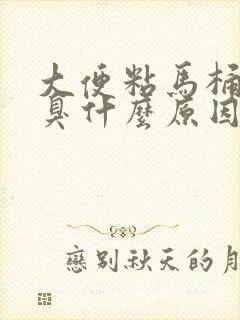 大便粘馬桶
臭什麼原因
戀別秋天的月